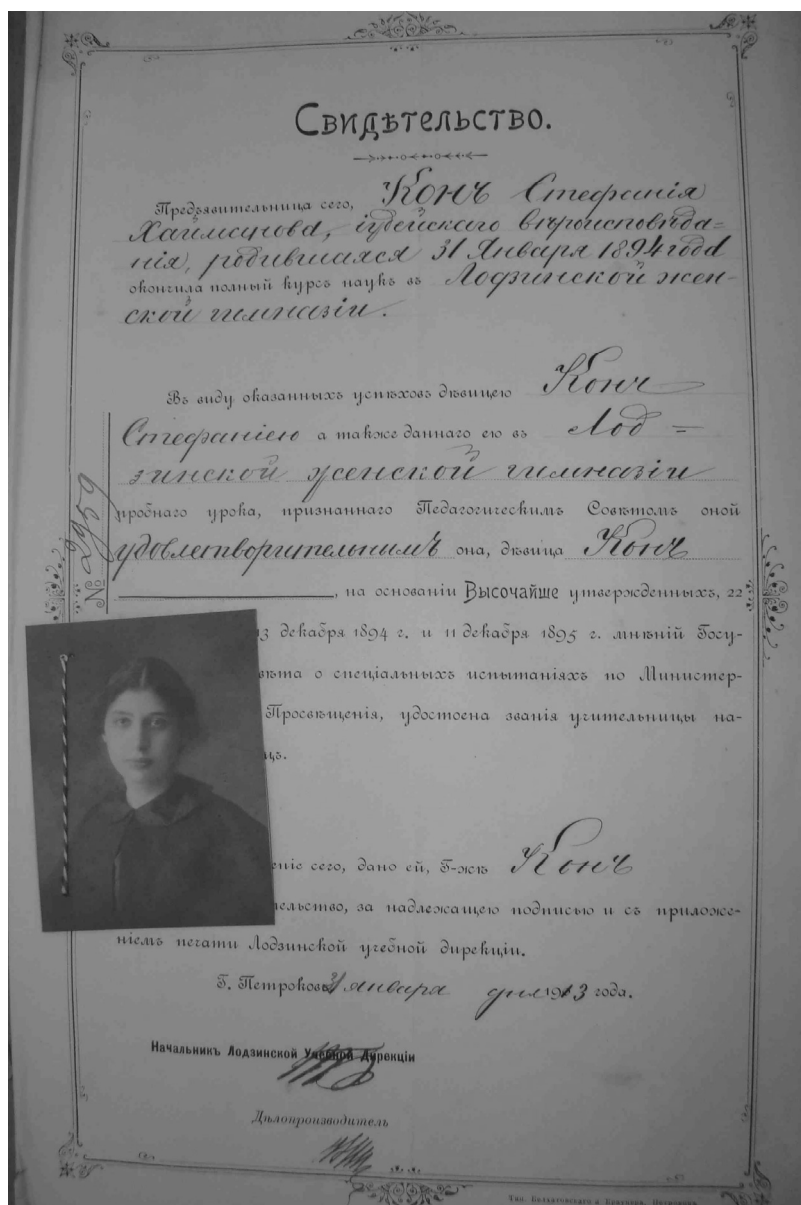 Свидѣтельство.
Предъявительница сего, Конъ Стефанія
Хаимовна, іудейскаго вѣроисповѣда=
нія, родившаяся 31 Января 1894 года
окончила полный курсъ наукъ въ Лодзинской жен-
ской гимназіи.
Въ виду оказанныхъ успѣховъ дѣвицею Конъ
Стефаніею а также даннаго ею въ Лод=
зинской женской гимназіи
пробнаго урока, признаннаго Педагогическимъ Совѣтомъ оной
удовлетворительнымъ она, дѣвица Конъ
, на основаніи Высочайше утвержденныхъ, 22
№ 2959
13 декабря 1894 г. и 11 декабря 1895 г. мнѣній Госу-
вѣта о спеціальныхъ испытаніяхъ по Министер-
Просвѣщенія, удостоена званія учительницы на-
щъ.
еніе сего, дано ей, Г-жѣ Конъ
тельство, за надлежащею подписью и съ приложе-
ніемъ печати Лодзинской учебной дирекціи.
Г. Петроковъ 31 января дня 1913 года.
Начальникъ Лодзинской Учебной Дирекціи
Дѣлопроизводитель